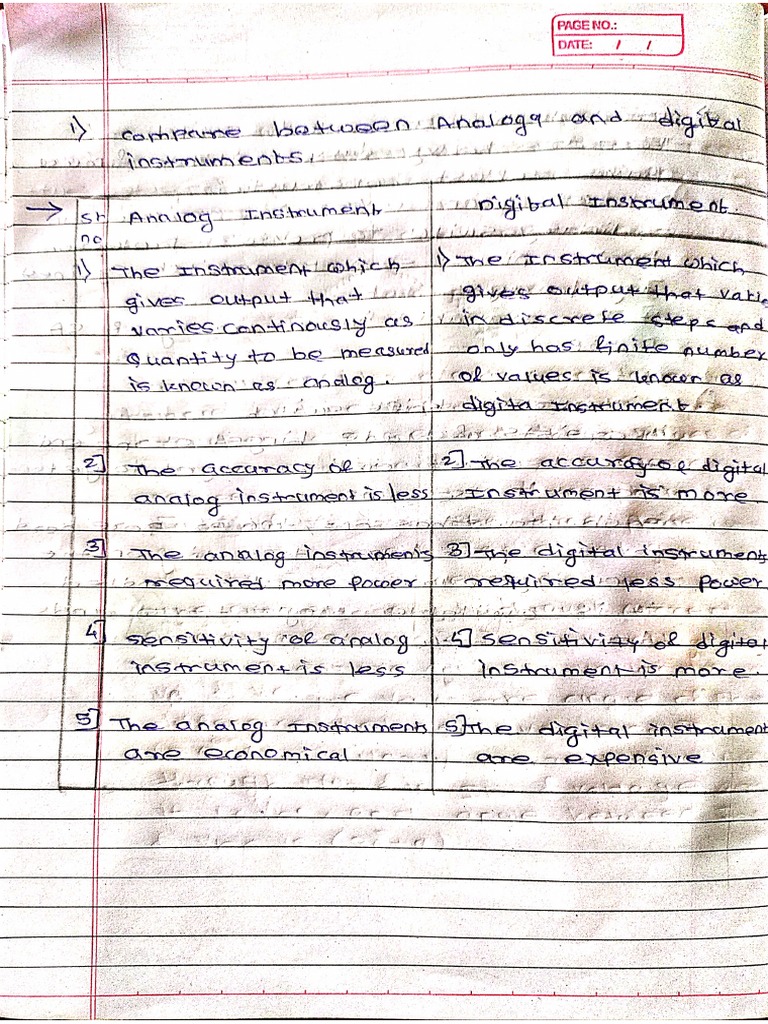 PAGE NO.:
DATE: / /
1) Compare between Analogy and digital
instruments.
→ Sr no Analog Instrument Digital Instrument
1) The Instrument which
gives output that
varies continously as
Quantity to be measured
is known as analog.
1) The Instrument which
gives output that varie
in discrete steps and
only has finite number
of values is known as
digita Instrument.
2] The accuracy of
analog instrument is less
2] The accuracy of digital
Instrument is more.
3] The analog instruments
required more power
3] The digital instrument
required less power
4] Sensitivity of analog
instrument is less
4] Sensitivity of digital
instrument is more.
5] The analog Instruments
are economical
5] The digital instrument
are expensive